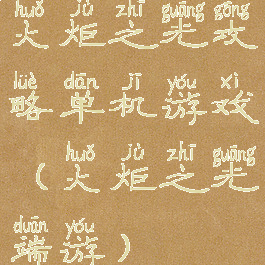 huǒ jù zhī guāng gōng
火炬之光攻
lüè dān jī yóu xì
略单机游戏
huǒ jù zhī guāng
（火炬之光
duān yóu
端游）